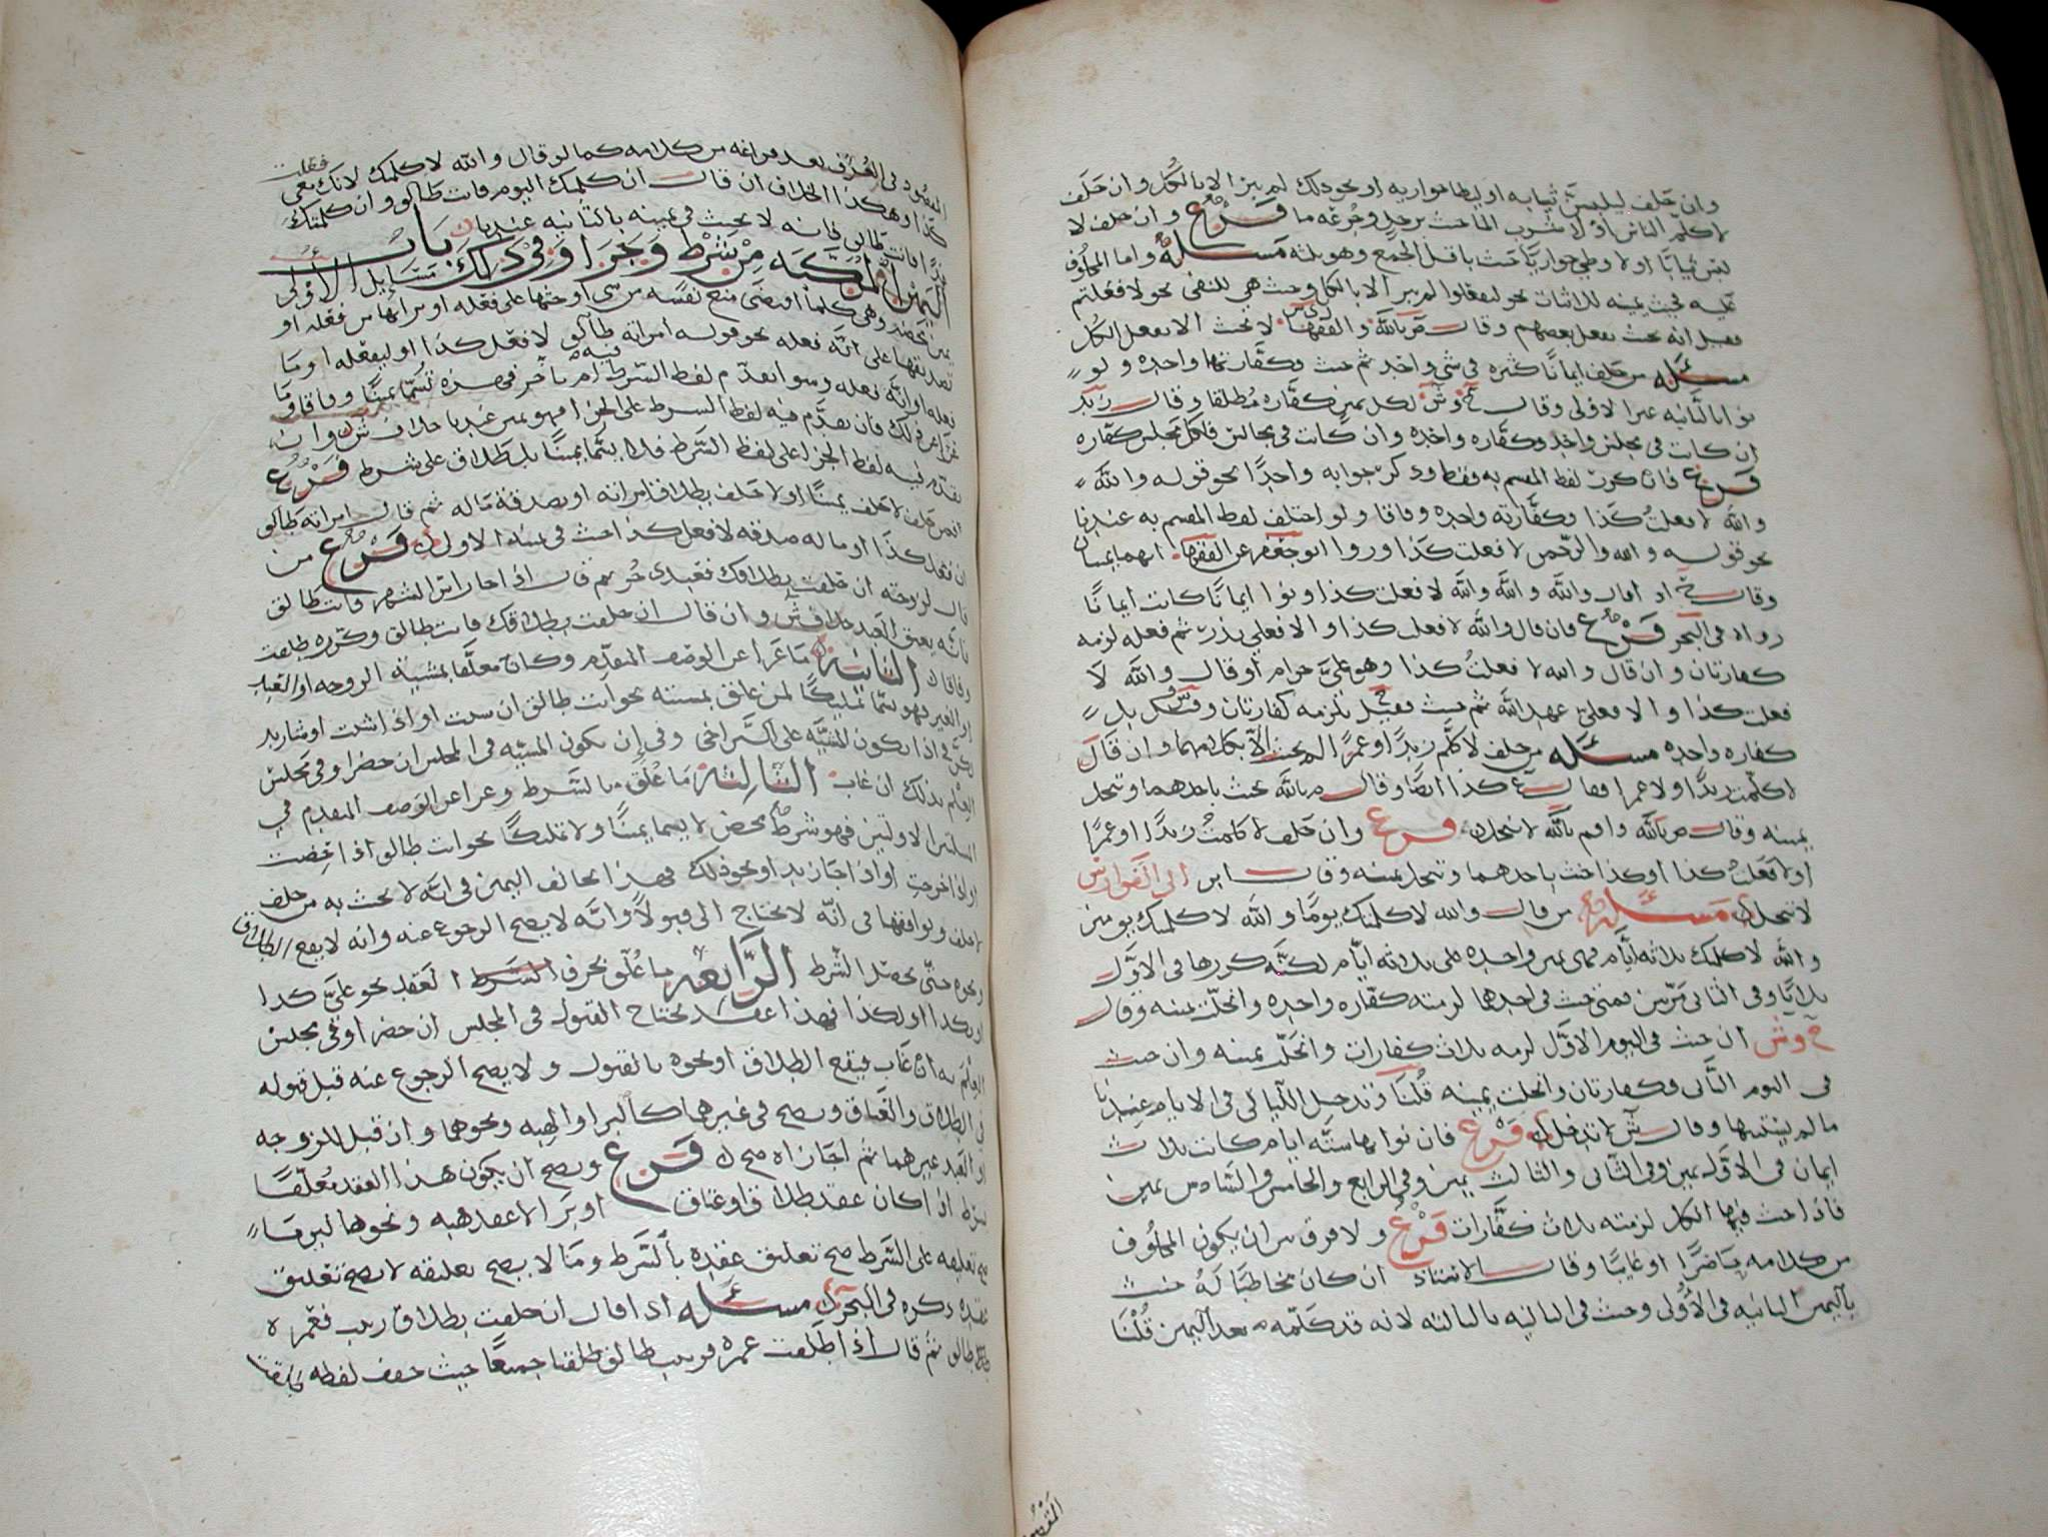 وان حلف ليلبس ثيابه او ليطا جواريه او نحو ذلك لم يبر الا بالكل وان حلف
لا كلم الناس او لا شرب الماء حنث برجل وجرعه ما فرع وان حلف لا
لبس ثيابا او لا وطي جواريا حنث باقل الجمع وهو ثلثه مسئله واما المحلوف
عليه فيحنث يمينه للاثبات نحو ليفعلوا لم يبر الا بالكل وحنث هي للنفي نحو لا فعلتم
فقيل انه يحنث بفعل بعضهم وقال م بالله والفقها لا يحنث الا بفعل الكل
مسئله من حلف ايمانا كثيره في شي واحد ثم حنث فكفارتها واحده ولو
نوا بالثانيه غير الاولى وقال ح وش لكل يمين كفاره مطلقا وقال زيد
ان كانت في مجلس واحد فكفاره واحده وان كانت في مجالس فلكل مجلس كفاره
فرع فان كرر لفظ المقسم به فقط وذكر جوابه واحدا نحو قوله والله
والله لا فعلت كذا فكفارته واحده وفاقا ولو اختلف لفظ المقسم به عندنا
نحو قوله والله والرحمن لا فعلت كذا وروا ابو جعفر عن الفقها انهما يمينان
وقال ح اذا قال والله والله والله لا فعلت كذا ونوا ايمانا كانت ايمانا
رواه في البحر فرع فان قال والله لا فعلت كذا والا فعلي نذر ثم فعله لزمه
كفارتان وان قال والله لا فعلت كذا وهو علي حرام او قال والله لا
فعلت كذا والا فعلي عهد الله ثم حنث فقيل تلزمه كفارتان وقيل بل
كفاره واحده مسئله من حلف لا كلم زيدا او عمرا لم يحنث الا بكلامهما وان قال
لا كلمت زيدا ولا عمرا فقال ع كذا ايضا وقال م بالله يحنث باحدهما وتنحل
يمينه وقال ص بالله وا م بالله لا تنحل فرع وان حلف لا كلمت زيدا او عمرا
او لا فعلت كذا او كذا حنث باحدهما وتنحل يمينه وقال ابن ابي الفوارس
لا تنحل مسئله من قال والله لا كلمتك يوما والله لا كلمتك يومين
والله لا كلمتك ثلاثه ايام فهي يمين واحده على ثلاثه ايام لكنه كررها في الاول
ثلاثا وفي الثاني مرتين فمتى حنث في احدها لزمته كفاره واحده وانحلت يمينه وقال
ح وش ان حنث في اليوم الاول لزمه ثلاث كفارات وانحل يمينه وان حنث
في اليوم الثاني فكفارتان وانحلت يمينه قلنا وتدخل الليالي في الايام عندنا
ما لم يستثنها وقال ش لا تدخل فرع فان نوا بها سته ايام كانت ثلاث
ايمان في الاول يمين وفي الثاني والثالث يمين وفي الرابع والخامس والسادس يمين
فاذا حنث فيها الكل لزمته ثلاث كفارات فرع ولا فرق بين ان يكون المحلوف
من كلامه حاضرا او غايبا وقال الاستاذ ان كان مخاطبا له حنث
باليمين الثانيه في الاولى وحنث في الثانيه بالثالثه لانه قد كلمه بعد اليمين قلنا
المقصود
المقصود في العرف بعد فراغه من كلامه كما لو قال والله لا كلمتك لانك تغمني
وهكذا الخلاف ان قال ان كلمتك اليوم فانت طالق وان كلمتك
غدا فانت طالق فانه لا يحنث في يمينه بالثانيه عندنا باب
اليمين المركبه من شرط وجزا وفي ذلك مسايل الاولى
وهي كلما اقتضى منع نفسه من شي او حثها على فعله او براتها من فعله او
تصديقها على انه فعله نحو قوله امراته طالق لا فعل كذا او ليفعله او ما
فعله او انه فعله وسوا تقدم لفظ الشرط ام تاخر فهذه تسما يمينا وفاقا وما
ذلك فان تقدم فيه لفظ الشرط على الجزا فهو يمين عندنا خلاف ش وان
تقدم فيه لفظ الجزا على لفظ الشرط فلا يسما يمينا بل طلاق على شرط فرع
فمن حلف لا حلف يمينا او لا حلف بطلاق امراته او بصدقة ماله ثم قال امراته طالق
ان فعل كذا او ماله صدقه لا فعل كذا حنث في يمينه الاولى فرع من
قال لزوجته ان حلفت بطلاقك فعبدي حر ثم قال اذا جا راس الشهر فانت طالق
فانه يعتق العبد خلاف ش وان قال ان حلفت بطلاقك فانت طالق وكرره طلقت
وفاقا الثانيه ما عرا عن الوصف المتقدم وكان معلقا بمشيه الزوجه او العبد
او الغير فهو يسما تمليكا لمن علق بمشيته نحو انت طالق ان شيت او اذا شيت او شا زيد
لكن في اذا يكون المشيه على التراخي وفي ان يكون المشيه في المجلس ان حضر او في مجلس
العلم بذلك ان غاب الثالثه ما علق بالشرط وعرا عن الوصف المتقدم في
المسلتين الاولتين فهو شرط محض لا يسما يمينا ولا تمليكا نحو انت طالق اذا حضت
او اذا خرجت او اذا جا زيد او نحو ذلك فهذا يخالف اليمين في انه لا يحنث به من حلف
لا حلف ويوافقها في انه لا يحتاج الى قبول وانه لا يصح الرجوع عنه وانه لا يقع الطلاق
ونحوه حتى يحصل الشرط الرابعه ما علق بحرف الشرط العقد نحو على كذا
او بكذا او لكذا فهذا عقد يحتاج القبول في المجلس ان حضر او في مجلس
العلم به ان غاب فيقع الطلاق او نحوه بالقبول ولا يصح الرجوع عنه قبل قبوله
في الطلاق والعتاق ويصح في غيرهما كالبرا والهبه ونحوهما وان قبل للزوجه
او العبد غيرهما ثم اجازاه صح فرع ويصح ان يكون هذا العقد معلقا
بشرط اذا كان عقد طلاق او عتاق او برا لا عقد هبه ونحوها لان ما
صح تعليقه على الشرط صح تعليق عقده بالشرط وما لا يصح تعليقه لا يصح تعليق
عقده ذكره في البحر مسئله اذا قال ان حلفت بطلاق زينب فعمره
طالق ثم قال اذا طلقت عمره فزينب طالق طلقتا جميعا حيث